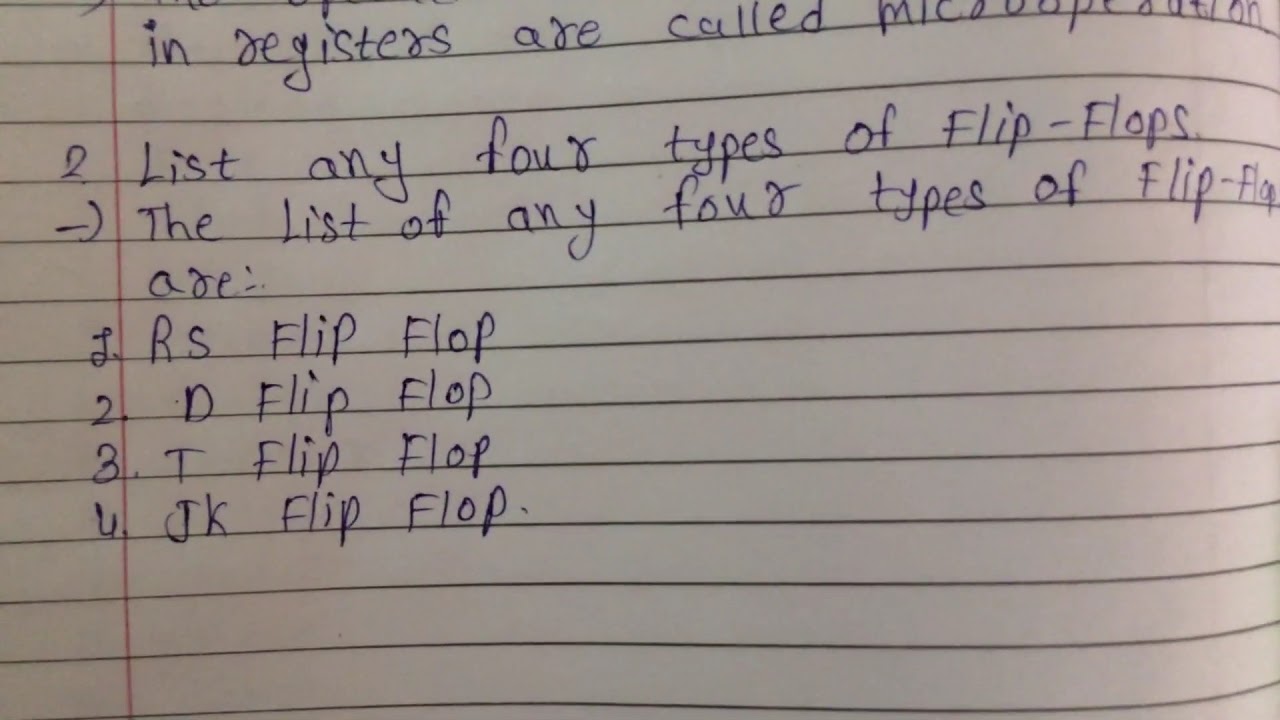 in registers are called microoperation
2 List any four types of Flip-Flops.
→ The List of any four types of Flip-Flop
are:-
1. RS Flip Flop
2. D Flip Flop
3. T Flip Flop
4. JK Flip Flop.